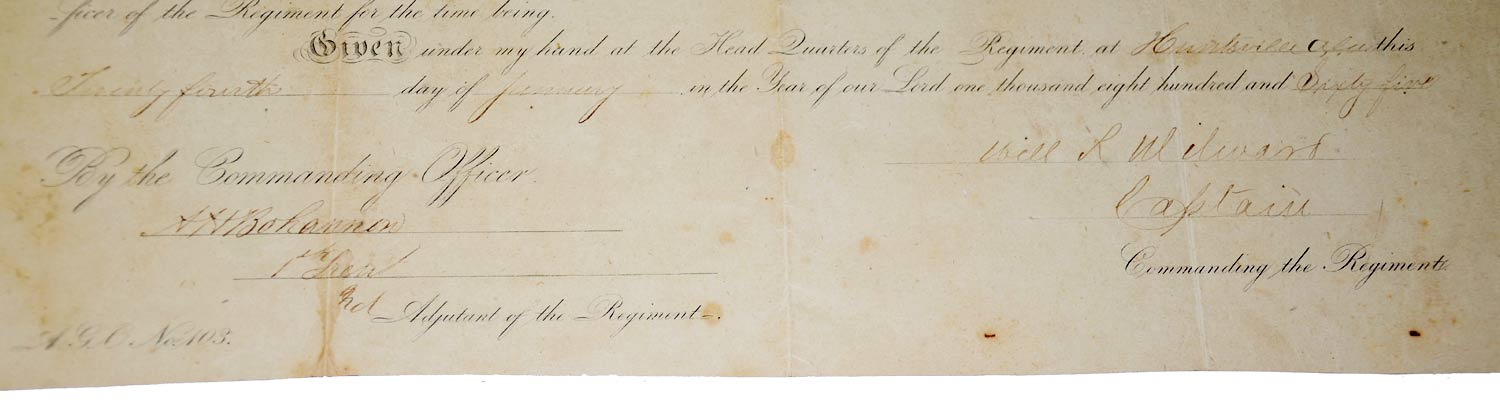 ficer of the Regiment for the time being.
Given under my hand at the Head Quarters of the Regiment at Huntsville Ala this
Twenty fourth day of January in the Year of our Lord one thousand eight hundred and Sixty five
Will R Milward
By the Commanding Officer.
Captain
A H Bohannon
1st Lieut
Commanding the Regiment.
Adjutant of the Regiment.
A. G. O. No. 103.